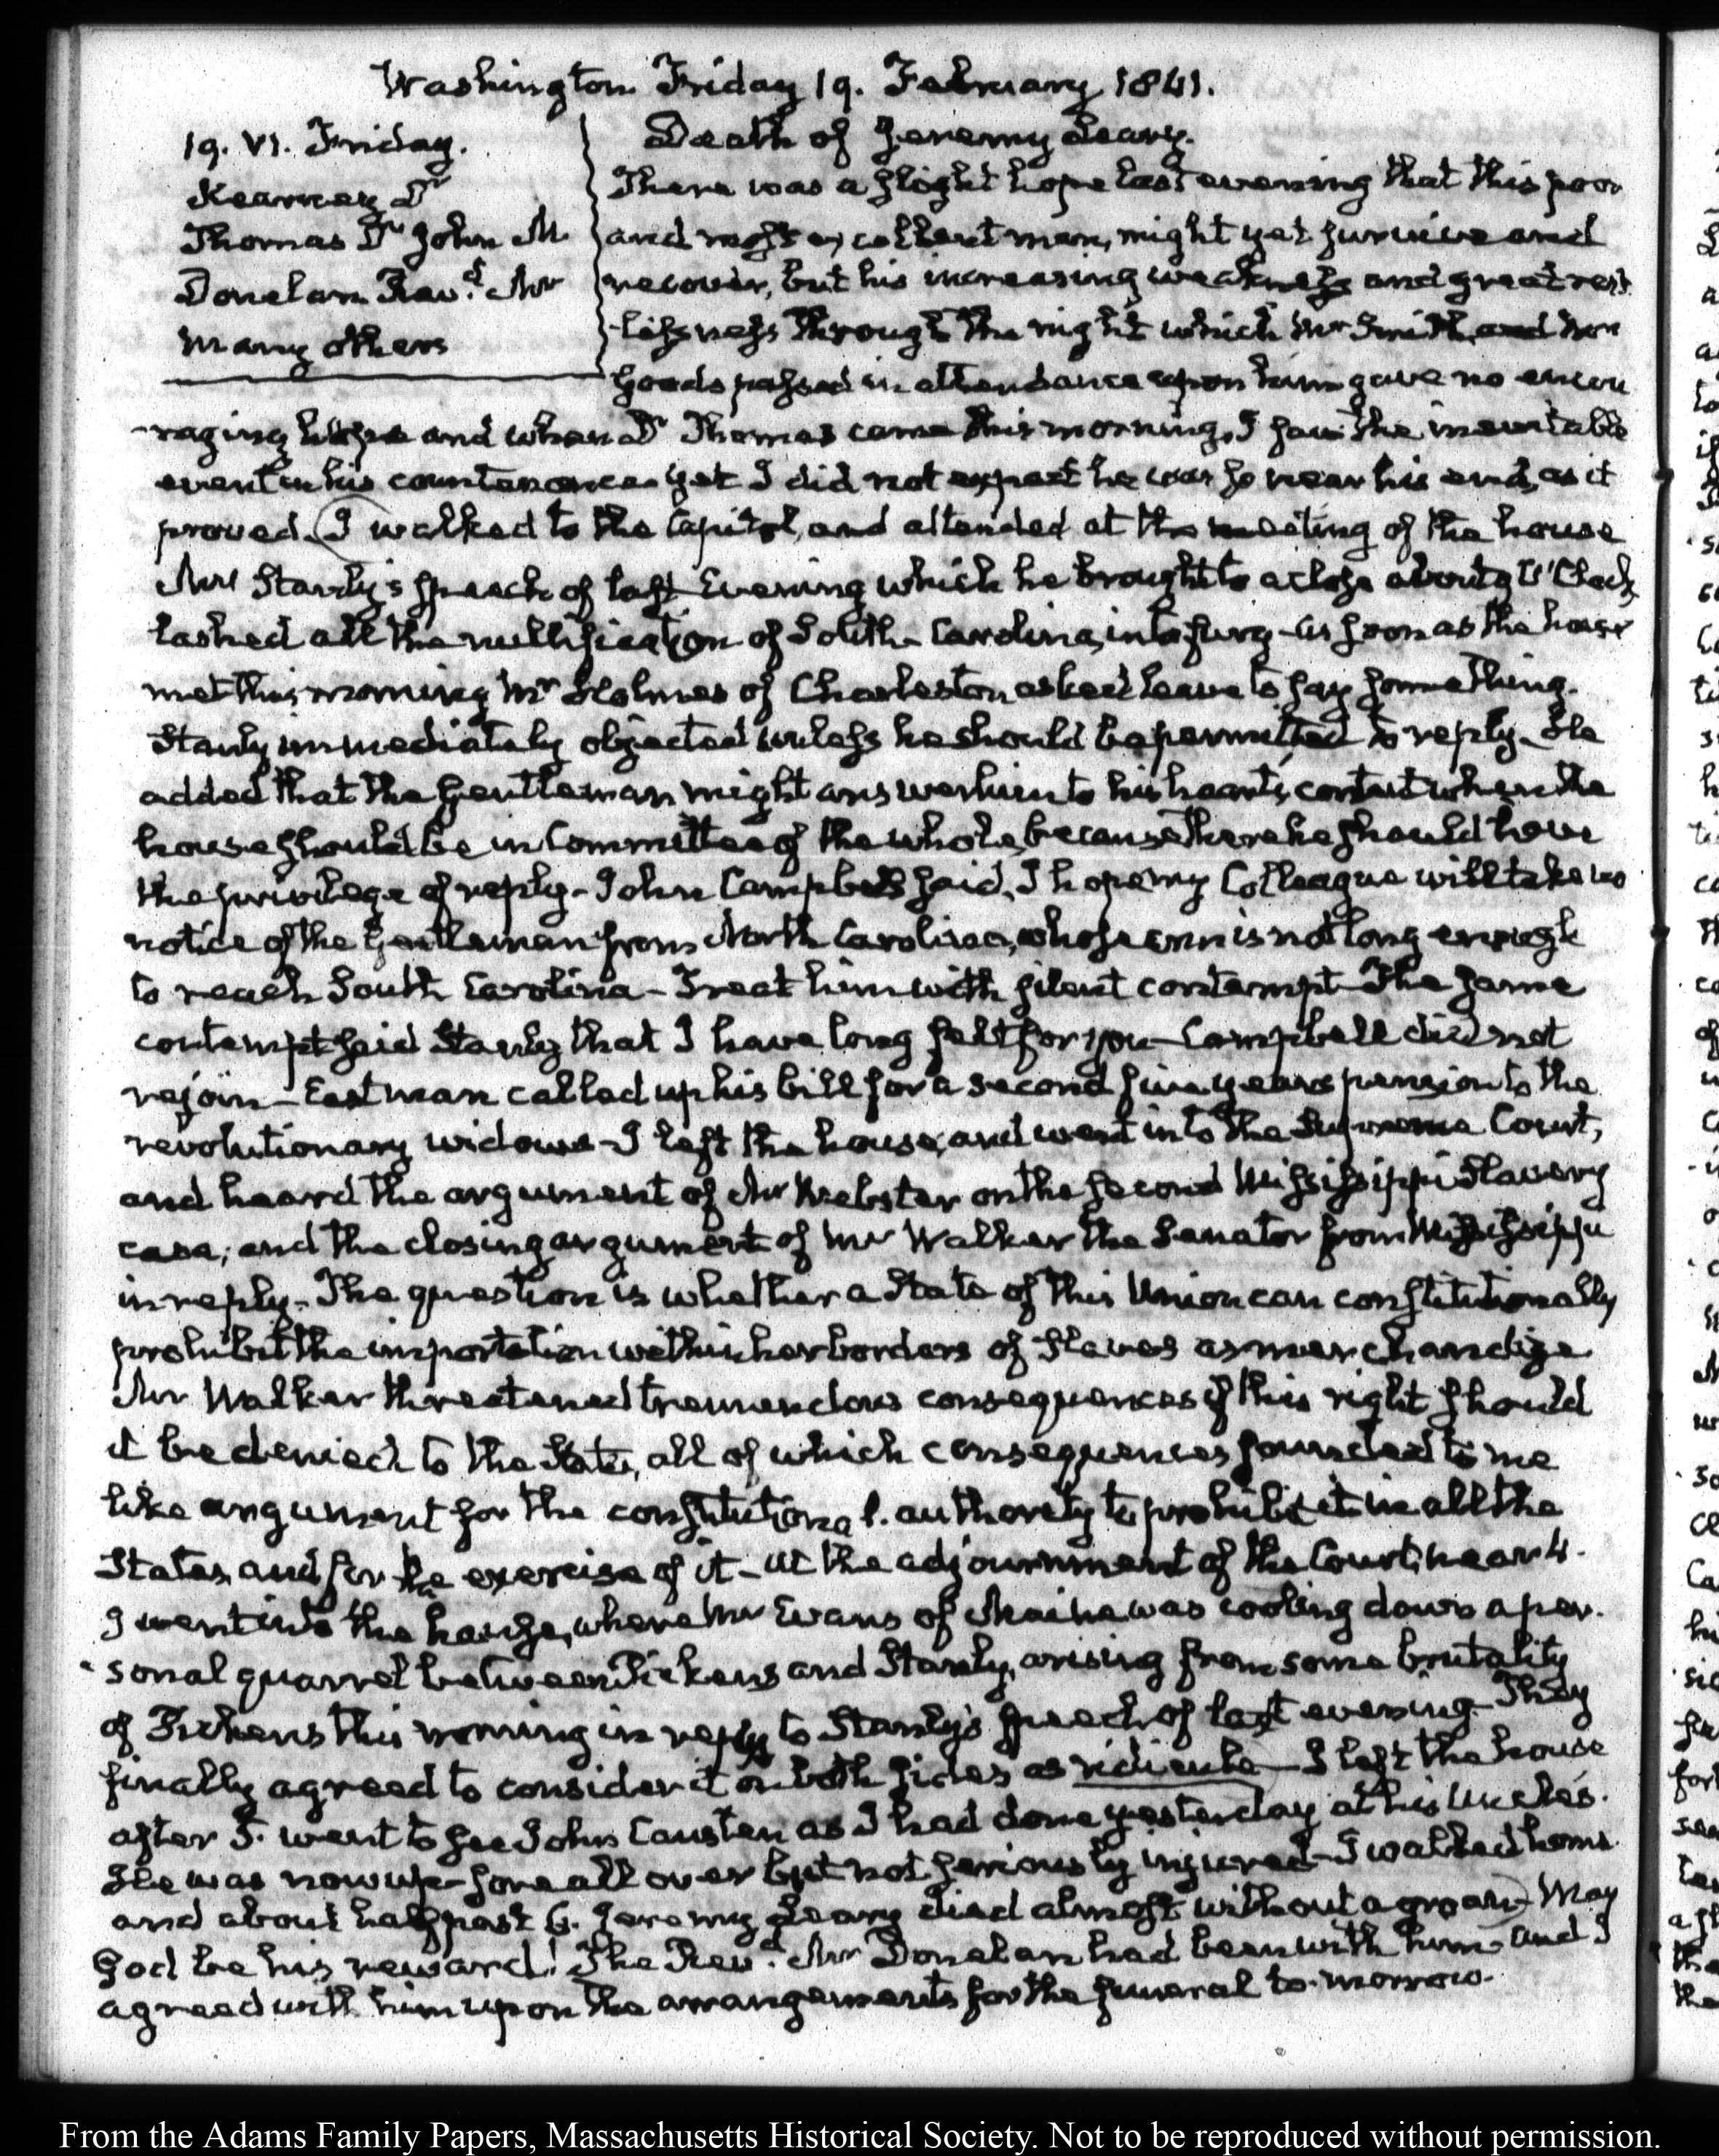 Washington Friday 19. February 1841.
19. VI. Friday.
Kearney Dr
Thomas Dr John M
Donelan Revd. Mr
Many others
Death of Jeremy Leary.
There was a slight hope last evening that this poor
and most excellent man, might yet survive and
recover, but his increasing weakness and great rest-
-lessness through the night which Mr Smith and
Goods passed in attendance upon him gave no encou
-raging hope and when Dr Thomas came this morning, I saw the inevitable
event in his countenance yet I did not expect he was so near his end, as it
proved. I walked to the Capitol, and attended at the meeting of the house
Mr Stanly's speech of last Evening which he brought to a close about 9 O'Clock
lashed all the nullification of South-Carolina, into fury - As soon as the house
met this morning Mr Holmes of Charleston asked leave to say something.
Stanly immediately objected unless he should be permitted to reply. He
added that the Gentleman might answer him to his heart's content when the
house should be in Committee of the whole, because there he should have
the privilege of reply - John Campbell said, I hope my Colleague will take no
notice of the Gentleman from North Carolina, whose arm is not long enough
to reach South Carolina - Treat him with silent contempt - The same
contempt said Stanly that I have long felt for you - Campbell did not
rejoin - Eastman called up his bill for a second five years pension to the
revolutionary widows - I left the house, and went into the Supreme Court,
and heard the argument of Mr Webster on the second Mississippi Slavery
case; and the closing argument of Mr Walker the Senator from Mississippi
in reply - The question is whether a State of this Union can constitutionally
prohibit the importation within her borders of Slaves as merchandize
Mr Walker threatened tremendous consequences if this right should
it be denied to the State, all of which consequences sounded to me
like argument for the constitutional. authority to prohibit it in all the
States, and for the exercise of it - At the adjournment of the Court, near 4.
I went into the house, where Mr Evans of Maine was cooling down a per-
-sonal quarrel between Pickens and Stanly, arising from some brutality
of Pickens this morning in reply to Stanly's speech of last evening - They
finally agreed to consider it on both sides as ridicule - I left the house
after 5. went to see John Causten as I had done yesterday at his Uncle's.
He was now up - sore all over but not seriously injured - I walked home
and about half past 6. Jeremy Leary died almost without a groan - May
God be his reward! The Revd. Mr Donelan had been with him - and I
agreed with him upon the arrangements for the funeral to-morrow.
From the Adams Family Papers, Massachusetts Historical Society. Not to be reproduced without permission.